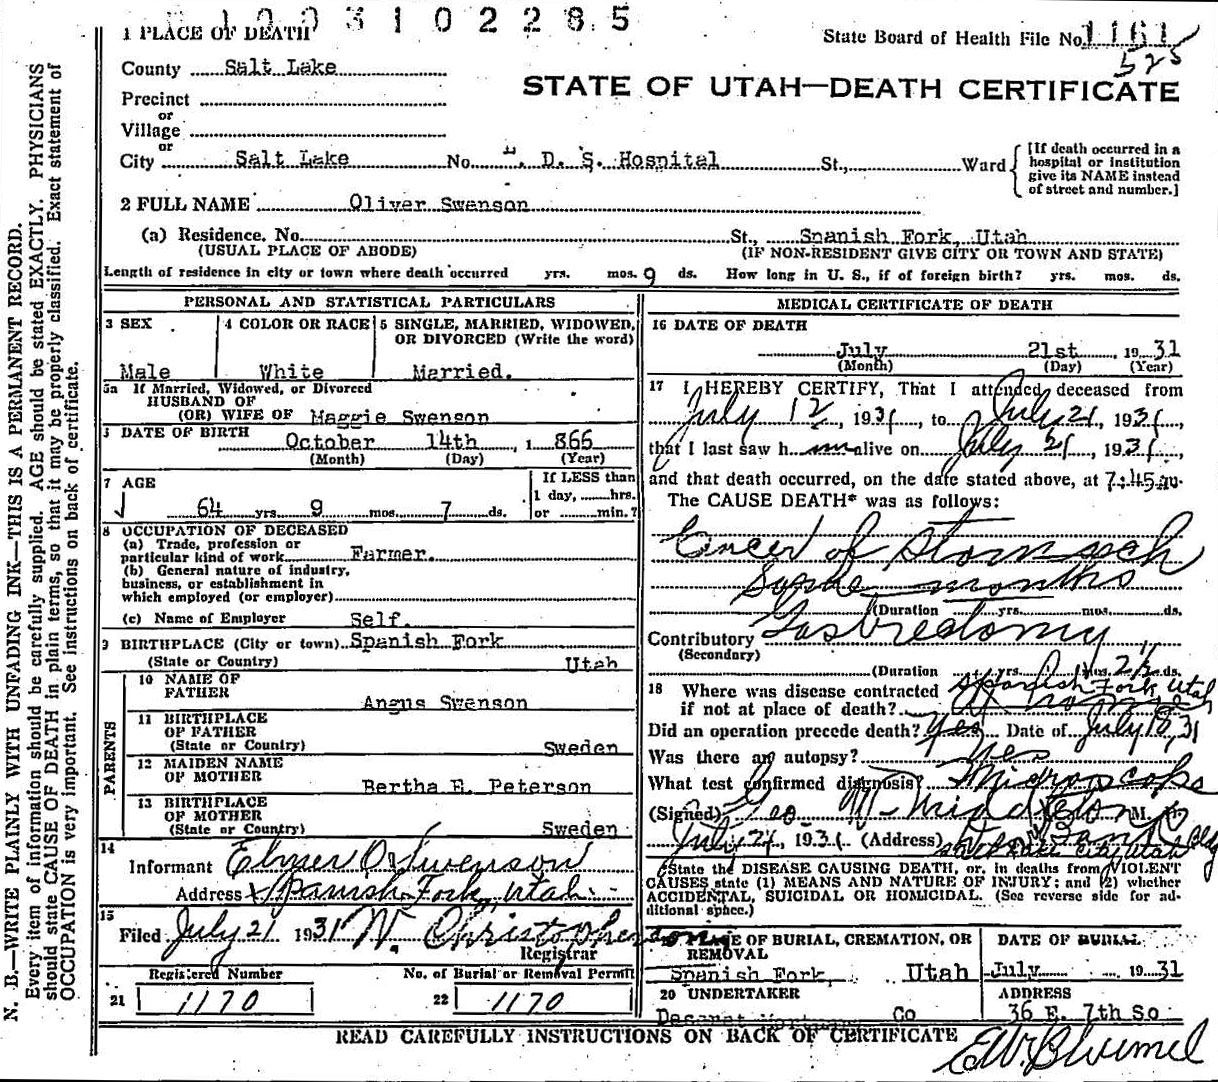 1003102285
1 PLACE OF DEATH
State Board of Health File No. 1161
525
County Salt Lake
STATE OF UTAH—DEATH CERTIFICATE
Precinct
or
Village
or
City Salt Lake No. . D. S. Hospital St., Ward
[If death occurred in a
hospital or institution
give its NAME instead
of street and number.]
2 FULL NAME Oliver Swenson
(a) Residence. No. St., Spanish Fork, Utah
(USUAL PLACE OF ABODE) (IF NON-RESIDENT GIVE CITY OR TOWN AND STATE)
Length of residence in city or town where death occurred yrs. mos. 9 ds. How long in U. S., if of foreign birth? yrs. mos. ds.
PERSONAL AND STATISTICAL PARTICULARS
3 SEX 4 COLOR OR RACE 5 SINGLE, MARRIED, WIDOWED,
OR DIVORCED (Write the word)
Male White Married.
5a If Married, Widowed, or Divorced
HUSBAND OF
(OR) WIFE OF Maggie Swenson
DATE OF BIRTH
October 14th , 1 866
(Month) (Day) (Year)
7 AGE If LESS than
1 day, hrs.
64 yrs. 9 mos. 7 ds. or min.?
8 OCCUPATION OF DECEASED
(a) Trade, profession or
particular kind of work Farmer.
(b) General nature of industry,
business, or establishment in
which employed (or employer)
(c) Name of Employer Self.
9 BIRTHPLACE (City or town) Spanish Fork
(State or Country) Utah
PARENTS
10 NAME OF
FATHER
Angus Swenson
11 BIRTHPLACE
OF FATHER
(State or Country) Sweden
12 MAIDEN NAME
OF MOTHER
Bertha E. Peterson
13 BIRTHPLACE
OF MOTHER
(State or Country) Sweden
14
Informant Elmer O. Swenson
Address Spanish Fork, Utah
15
Filed July 21 1931 N. Christophenson
Registrar
Registered Number No. of Burial or Removal Permit
21 1170 22 1170
MEDICAL CERTIFICATE OF DEATH
16 DATE OF DEATH
July 21st , 19 31
(Month) (Day) (Year)
17 I HEREBY CERTIFY, That I attended deceased from
July 12, 1931, to July 21, 1931,
that I last saw h im alive on July 21, 1931,
and that death occurred, on the date stated above, at 7:45
The CAUSE DEATH* was as follows:
Cancer of Stomach
Some months
(Duration yrs. mos. ds.
Contributory Gastrectomy
(Secondary)
(Duration yrs. mos. 2 1/2 ds.
18 Where was disease contracted Spanish Fork Utah
if not at place of death? At home
Did an operation precede death? Yes Date of July 18, 31
Was there an autopsy? Yes
What test confirmed diagnosis? Microscope
(Signed) Geo W. Middleton M. D.
July 21, 1931. (Address)
Salt Lake City, Utah
*State the DISEASE CAUSING DEATH, or, in deaths from VIOLENT
CAUSES state (1) MEANS AND NATURE OF INJURY; and (2) whether
ACCIDENTAL, SUICIDAL OR HOMICIDAL. (See reverse side for ad-
ditional space.)
PLACE OF BURIAL, CREMATION, OR DATE OF BURIAL
REMOVAL
Spanish Fork, Utah July 19 31
20 UNDERTAKER ADDRESS
Deseret Mortuary Co 36 E. 7th So
READ CAREFULLY INSTRUCTIONS ON BACK OF CERTIFICATE
N. B.—WRITE PLAINLY WITH UNFADING INK—THIS IS A PERMANENT RECORD.
Every item of information should be carefully supplied. AGE should be stated EXACTLY. PHYSICIANS
should state CAUSE OF DEATH in plain terms, so that it may be properly classified. Exact statement of
OCCUPATION is very important. See instructions on back of certificate.